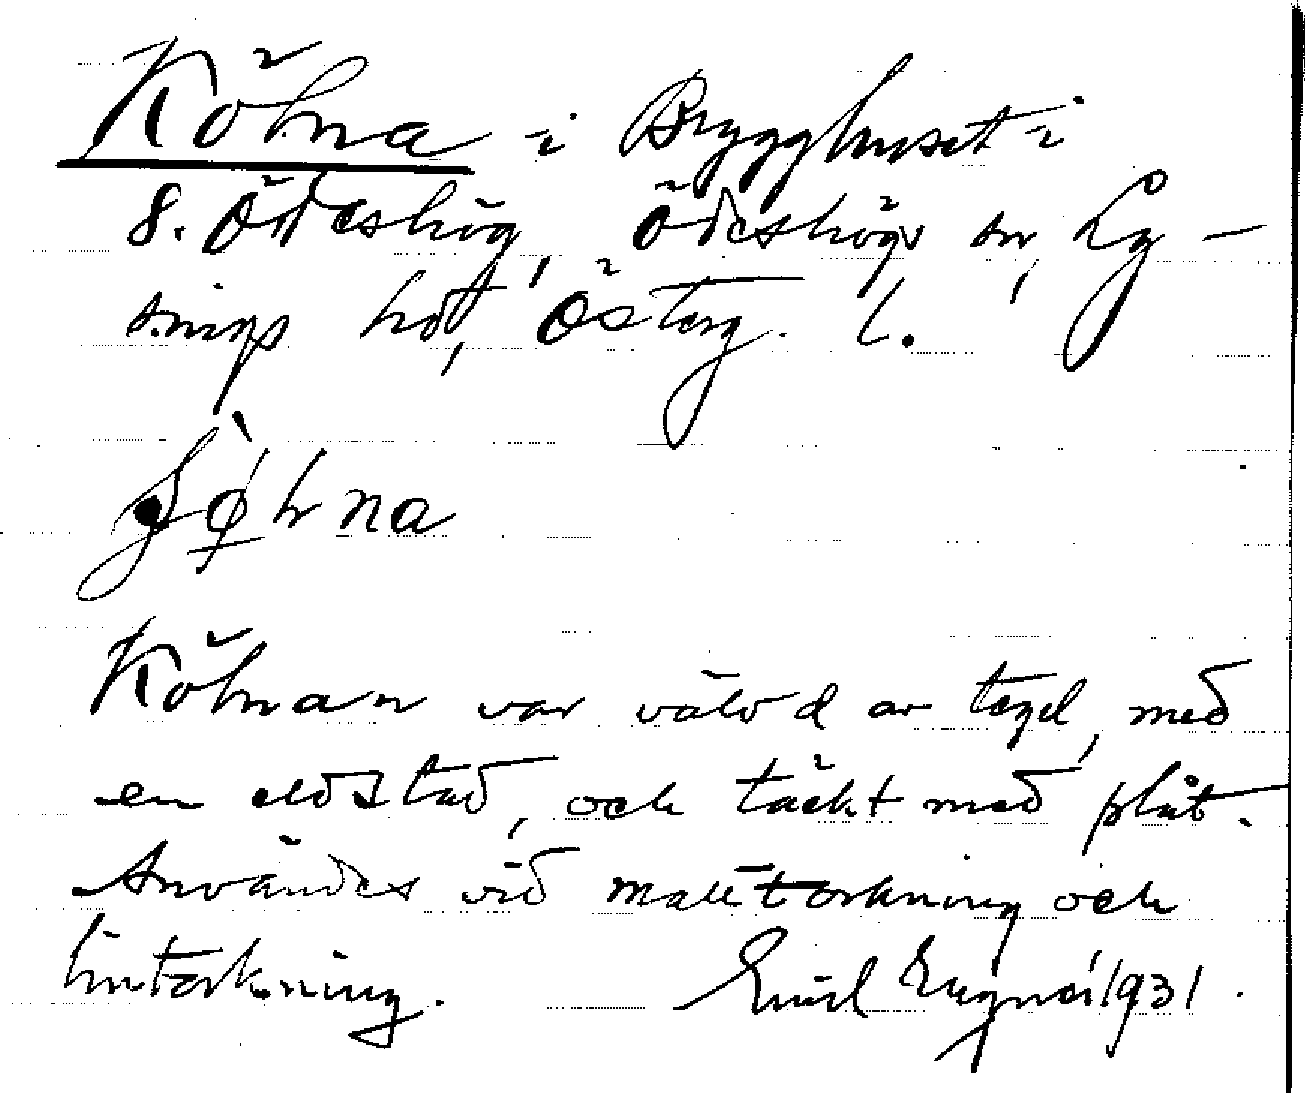 Kölna i Brygghuset i
S. Ödeshög, Ödeshögs sn, Ly-
sings hd, Österg. l.
Kölnan var välvd av tegel, med
en eldstad, och täckt med plåt.
Användes vid malttorkning och
lintorkning. Emil 1931.